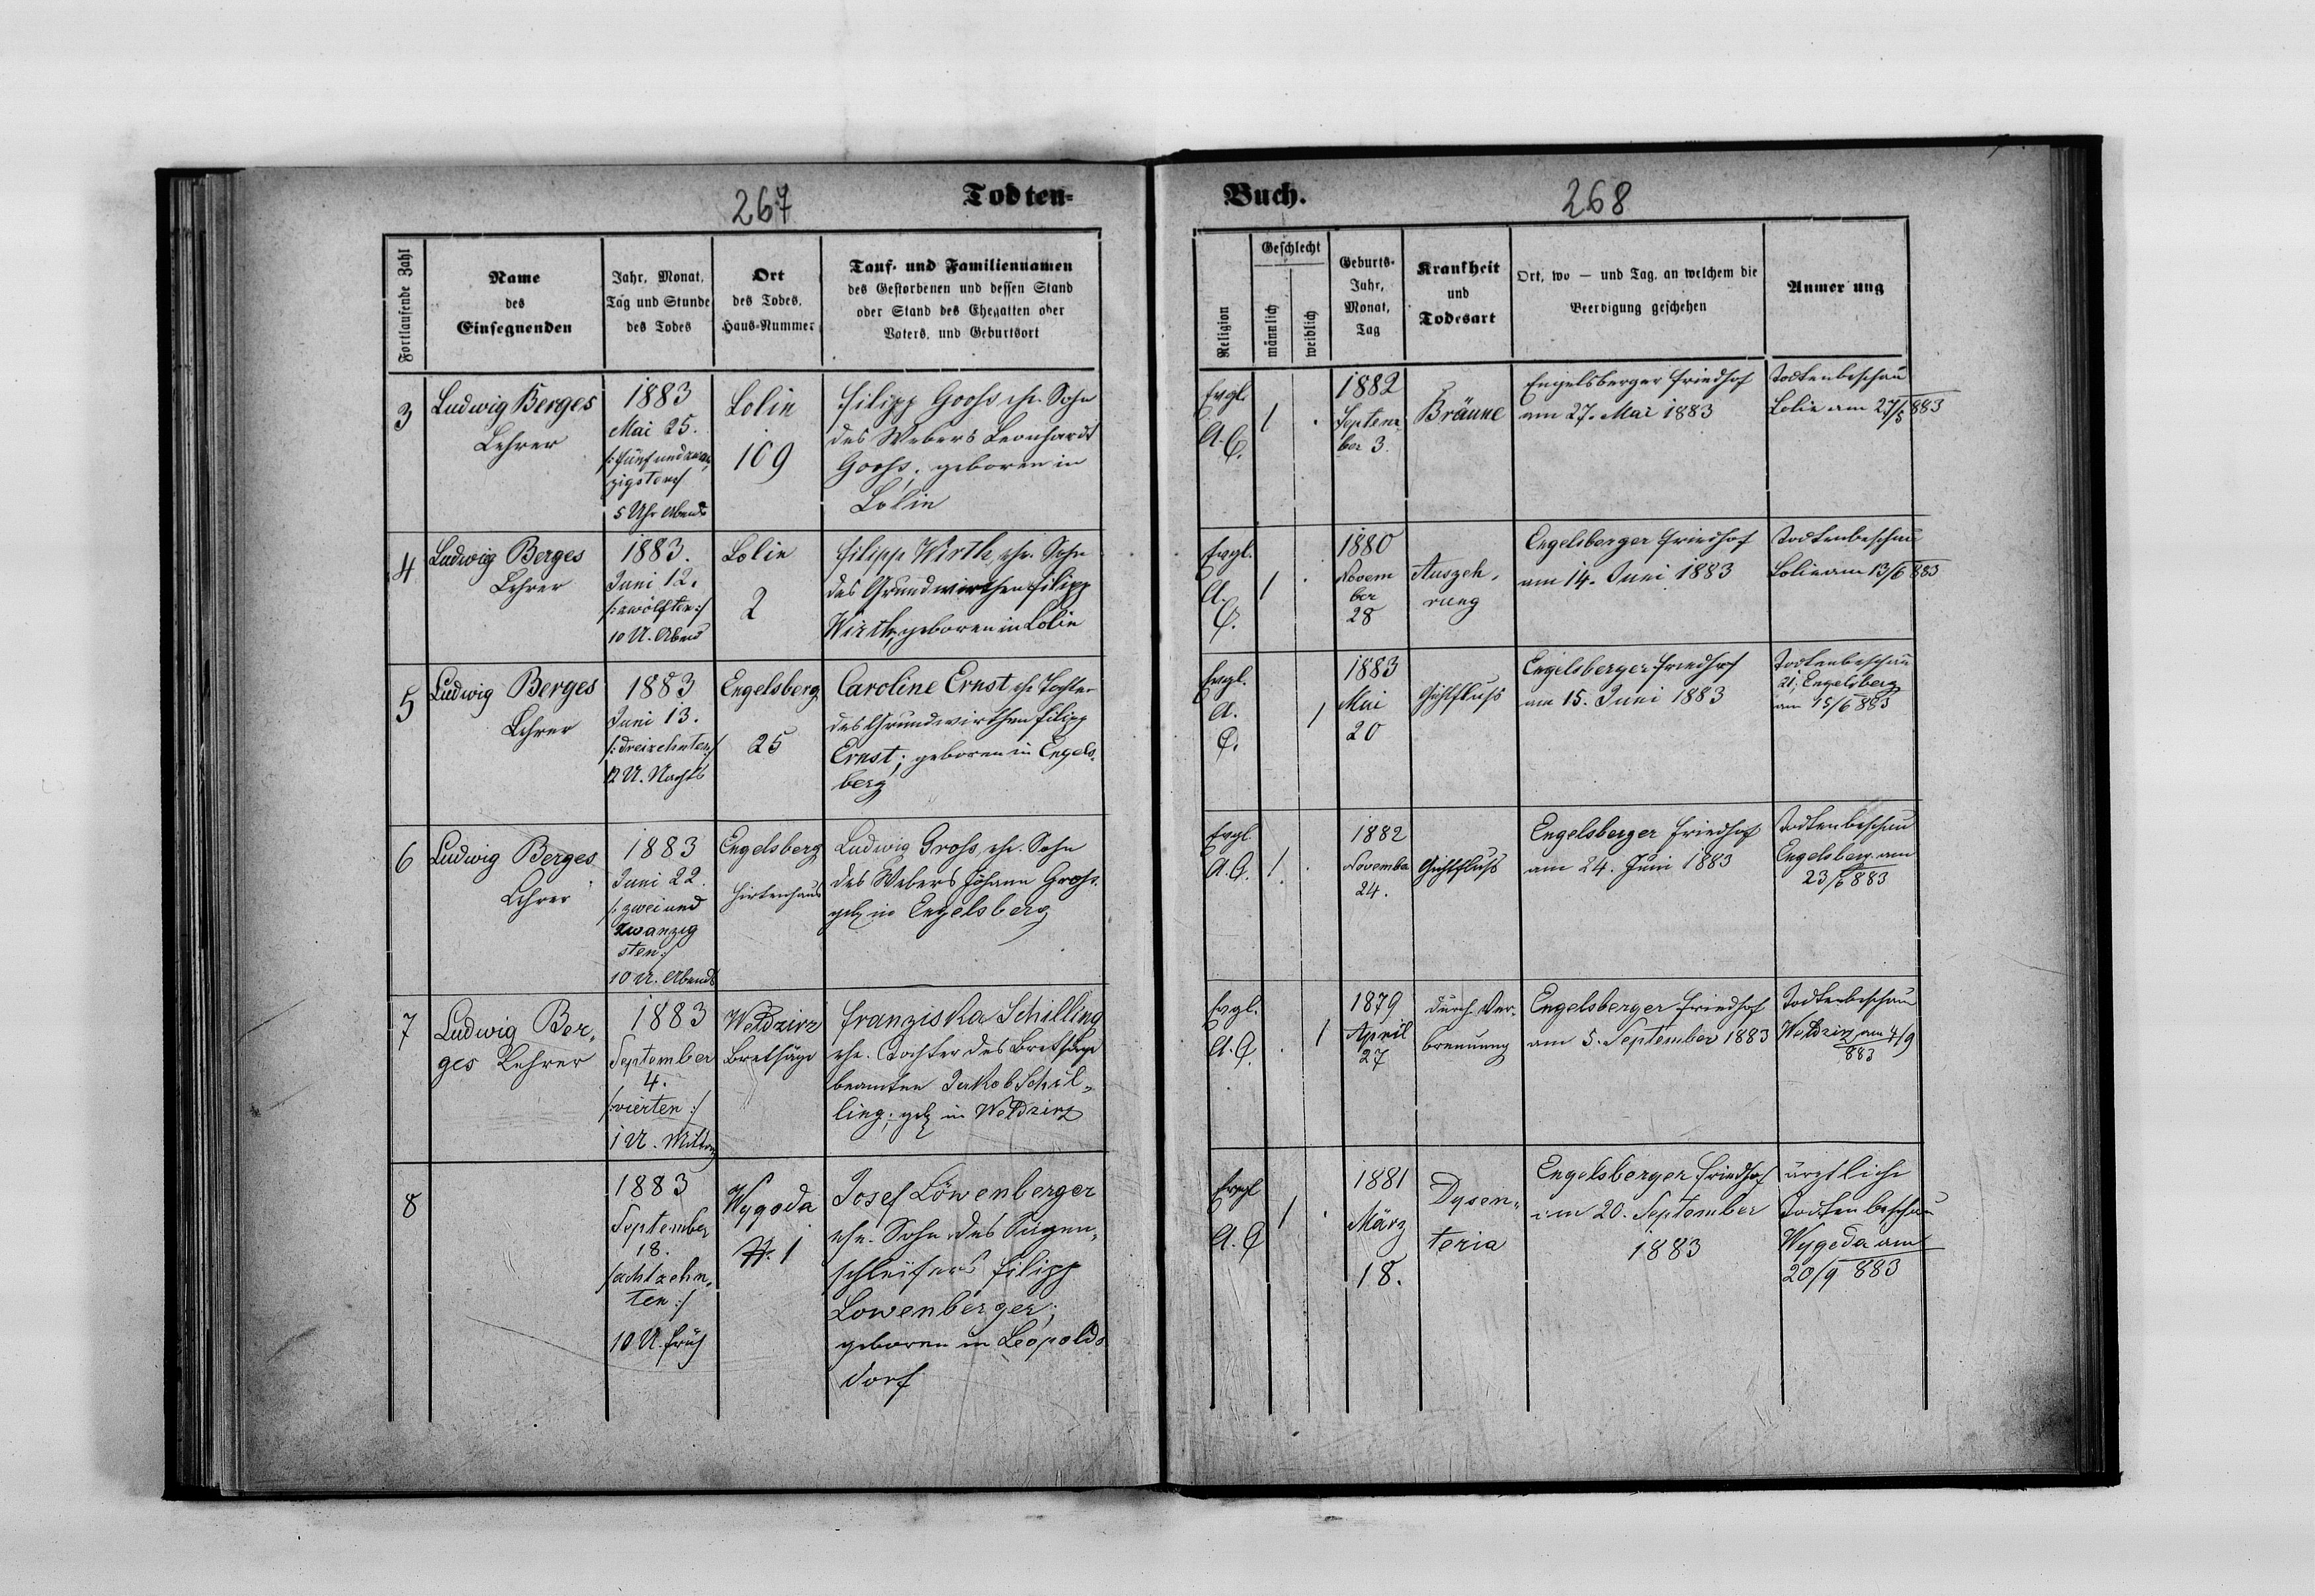 267 Todten-
Buch. 268
Fortlaufende Zahl
Name
des
Einsegnenden
Jahr, Monat,
Tag und Stunde
des Todes
Ort
des Todes,
Haus-Nummer
Tauf- und Familiennamen
des Gestorbenen und dessen Stand
oder Stand des Ehegatten oder
Vaters, und Geburtsort
Religion
Geschlecht
männlich
weiblich
Geburts-
Jahr,
Monat,
Tag
Krankheit
und
Todesart
Ort, wo — und Tag, an welchem die
Beerdigung geschehen
Anmer ung
3
Ludwig Berges
Lehrer
1883
Mai 25.
/:fünfundzwan
zigsten:/
5 Uhr Abends
Lolin
109
Filipp Gooß ehe. Sohn
des Webers Leonhardt
Gooß; geboren in
Lolin
Evgl.
A. C.
1 .
1882
Septem
ber 3.
Bräune
Engelsberger Friedhof
am 27. Mai 1883
Todtenbeschau
Lolin am 27/5 883
4
Ludwig Berges
Lehrer
1883.
Juni 12.
/:zwölften:/
10 U. Abend
Lolin
2
Filipp Wirth, ehe. Sohn
des Grundwirthen Filipp
Wirth, geboren in Lolin
Evgl.
A.
C.
1 .
1880
Novem
ber
28
Auszeh,
rung
Engelsberger Friedhof
am 14. Juni 1883
Todtenbeschau
Lolin am 13/6 883
5
Ludwig Berges
Lehrer
1883
Juni 13.
/:dreizehnten:/
12 U. Nachts
Engelsberg
25
Caroline Ernst, ehe Tochter
des Grundwirthen Filipp
Ernst; geboren in Engels,
berg
Evgl.
A.
C.
1
1883
Mai
20
Gichtfluss
Engelsberger Friedhof
am 15. Juni 1883
Todtenbeschau
Engelsberg
am 15/6 883
6
Ludwig Berges
Lehrer
1883
Juni 22.
/:zwei und
zwanzig
sten:/
10 U. Abends
Engelsberg
Hirtenhaus
Ludwig Groß, ehe. Sohn
des Webers Johann Groß.
geb in Engelsberg
Evgl.
A. C.
1 .
1882
November
24.
Gichtfluss
Engelsberger Friedhof
am 24. Juni 1883
Todtenbeschau
Engelsberg am
23/6 883
7
Ludwig Ber,
ges Lehrer
1883
September
4.
/:vierten:/
1 U. Mittag
Weldzirz
Bretsäge
Franziska Schilling
ehe. Tochter des Bretsäge
beamten Jakob Schil„
ling; geb in Weldzirz
Evgl.
A. C.
. 1
1879
April
27
durch Ver,
brennung
Engelsberger Friedhof
am 5. September 1883
Todtenbeschau
Weldzirz am 4/9
883
8
1883
September
18.
/achtzehn,
ten:/
10 U. früh
Wygoda
N. 1
Josef Löwenberger
ehe. Sohn des Sägen,
schleifers Filipp
Lowenberger;
geboren in Leopolds
dorf
Evgl
A. C
1 .
1881
März
18.
Dysen„
teria
Engelsberger Friedhof
am 20. September
1883
ärztliche
Todtenbeschau
Wygoda am
20/9 883